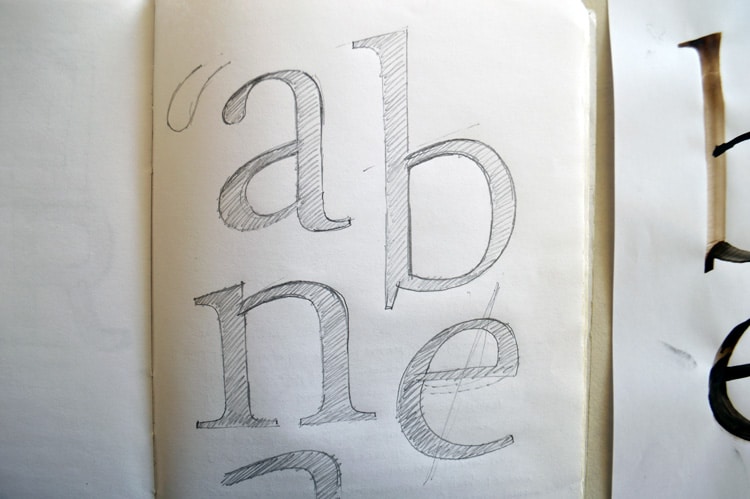 ab
ne
e